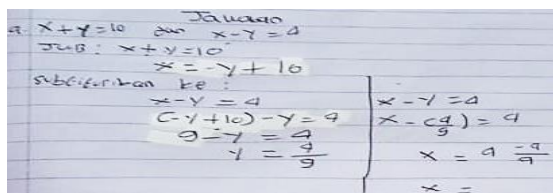 Jawaban
a. x + y = 10 dan x - y = 4
Jwb : x + y = 10
x = -y + 10
Subtitusikan ke :
x - y = 4
(-y + 10) - y = 4
9 - y = 4
y = 4/9
x - y = 4
x - (4/9) = 4
x = 4 -4/9
x =